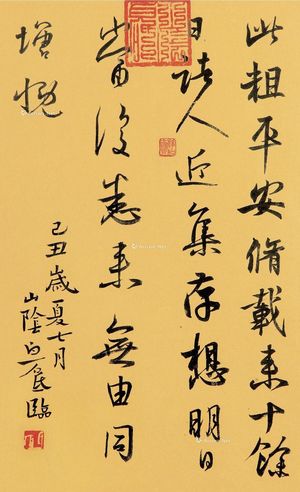 此粗平安脩載来十餘
日諸人近集存想明日
當復悉来無由同
增慨
己丑歲夏七月
山陰 臨